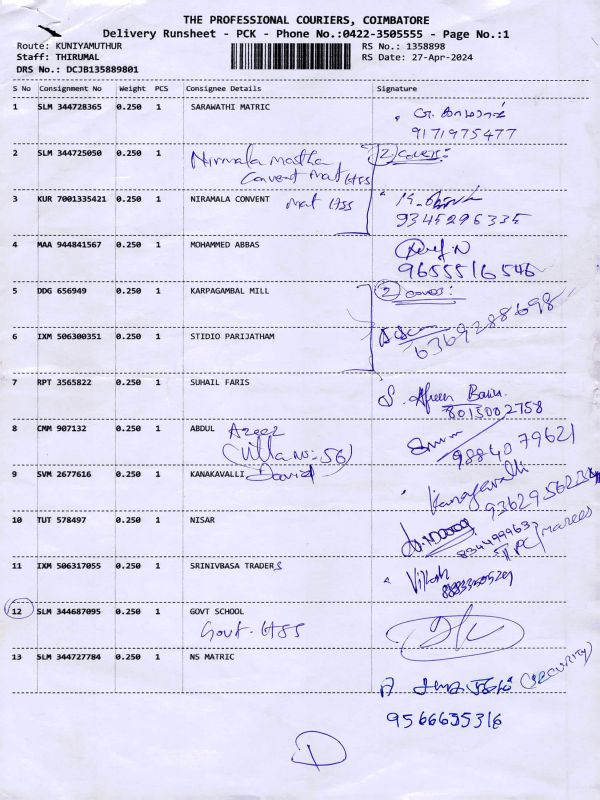 THE PROFESSIONAL COURIERS, COIMBATORE
Delivery Runsheet - PCK - Phone No.:0422-3505555 - Page No.:1
Route: KUNIYAMUTHUR RS No.: 1358898
Staff: THIRUMAL RS Date: 27-Apr-2024
DRS No.: DCJB135889801
S No Consignment No Weight PCS Consignee Details Signature
1 SLM 344728365 0.250 1 SARAWATHI MATRIC
9171975477
2 SLM 344725050 0.250 1 Nirmala Matha (2) covers:
Convent Mat HSS
3 KUR 7001335421 0.250 1 NIRAMALA CONVENT Mat HSS
9345296335
4 MAA 944841567 0.250 1 MOHAMMED ABBAS
9655516546
5 DDG 656949 0.250 1 KARPAGAMBAL MILL (2) covers:
6 IXM 506300351 0.250 1 STIDIO PARIJATHAM
6369288698
7 RPT 3565822 0.250 1 SUHAIL FARIS S. Afreen Banu
8015002758
8 CMM 907132 0.250 1 ABDUL Azeez
(Villa no: 56) 9884079621
9 SVM 2677616 0.250 1 KANAKAVALLI David Kanagavalli
10 TUT 578497 0.250 1 NISAR
11 IXM 506317055 0.250 1 SRINIVBASA TRADERS
12 SLM 344687095 0.250 1 GOVT SCHOOL
Govt. HSS
13 SLM 344727784 0.250 1 NS MATRIC
(SECURITY)
9566635316
D